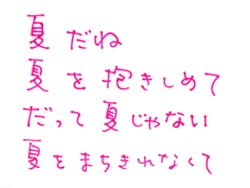 夏だね
夏を抱きしめて
だって夏じゃない
夏をまちきれなくて